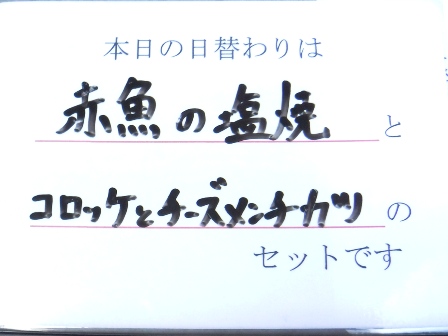 本日の日替わりは
赤魚の塩焼と
コロッケとチーズメンチカツの
セットです